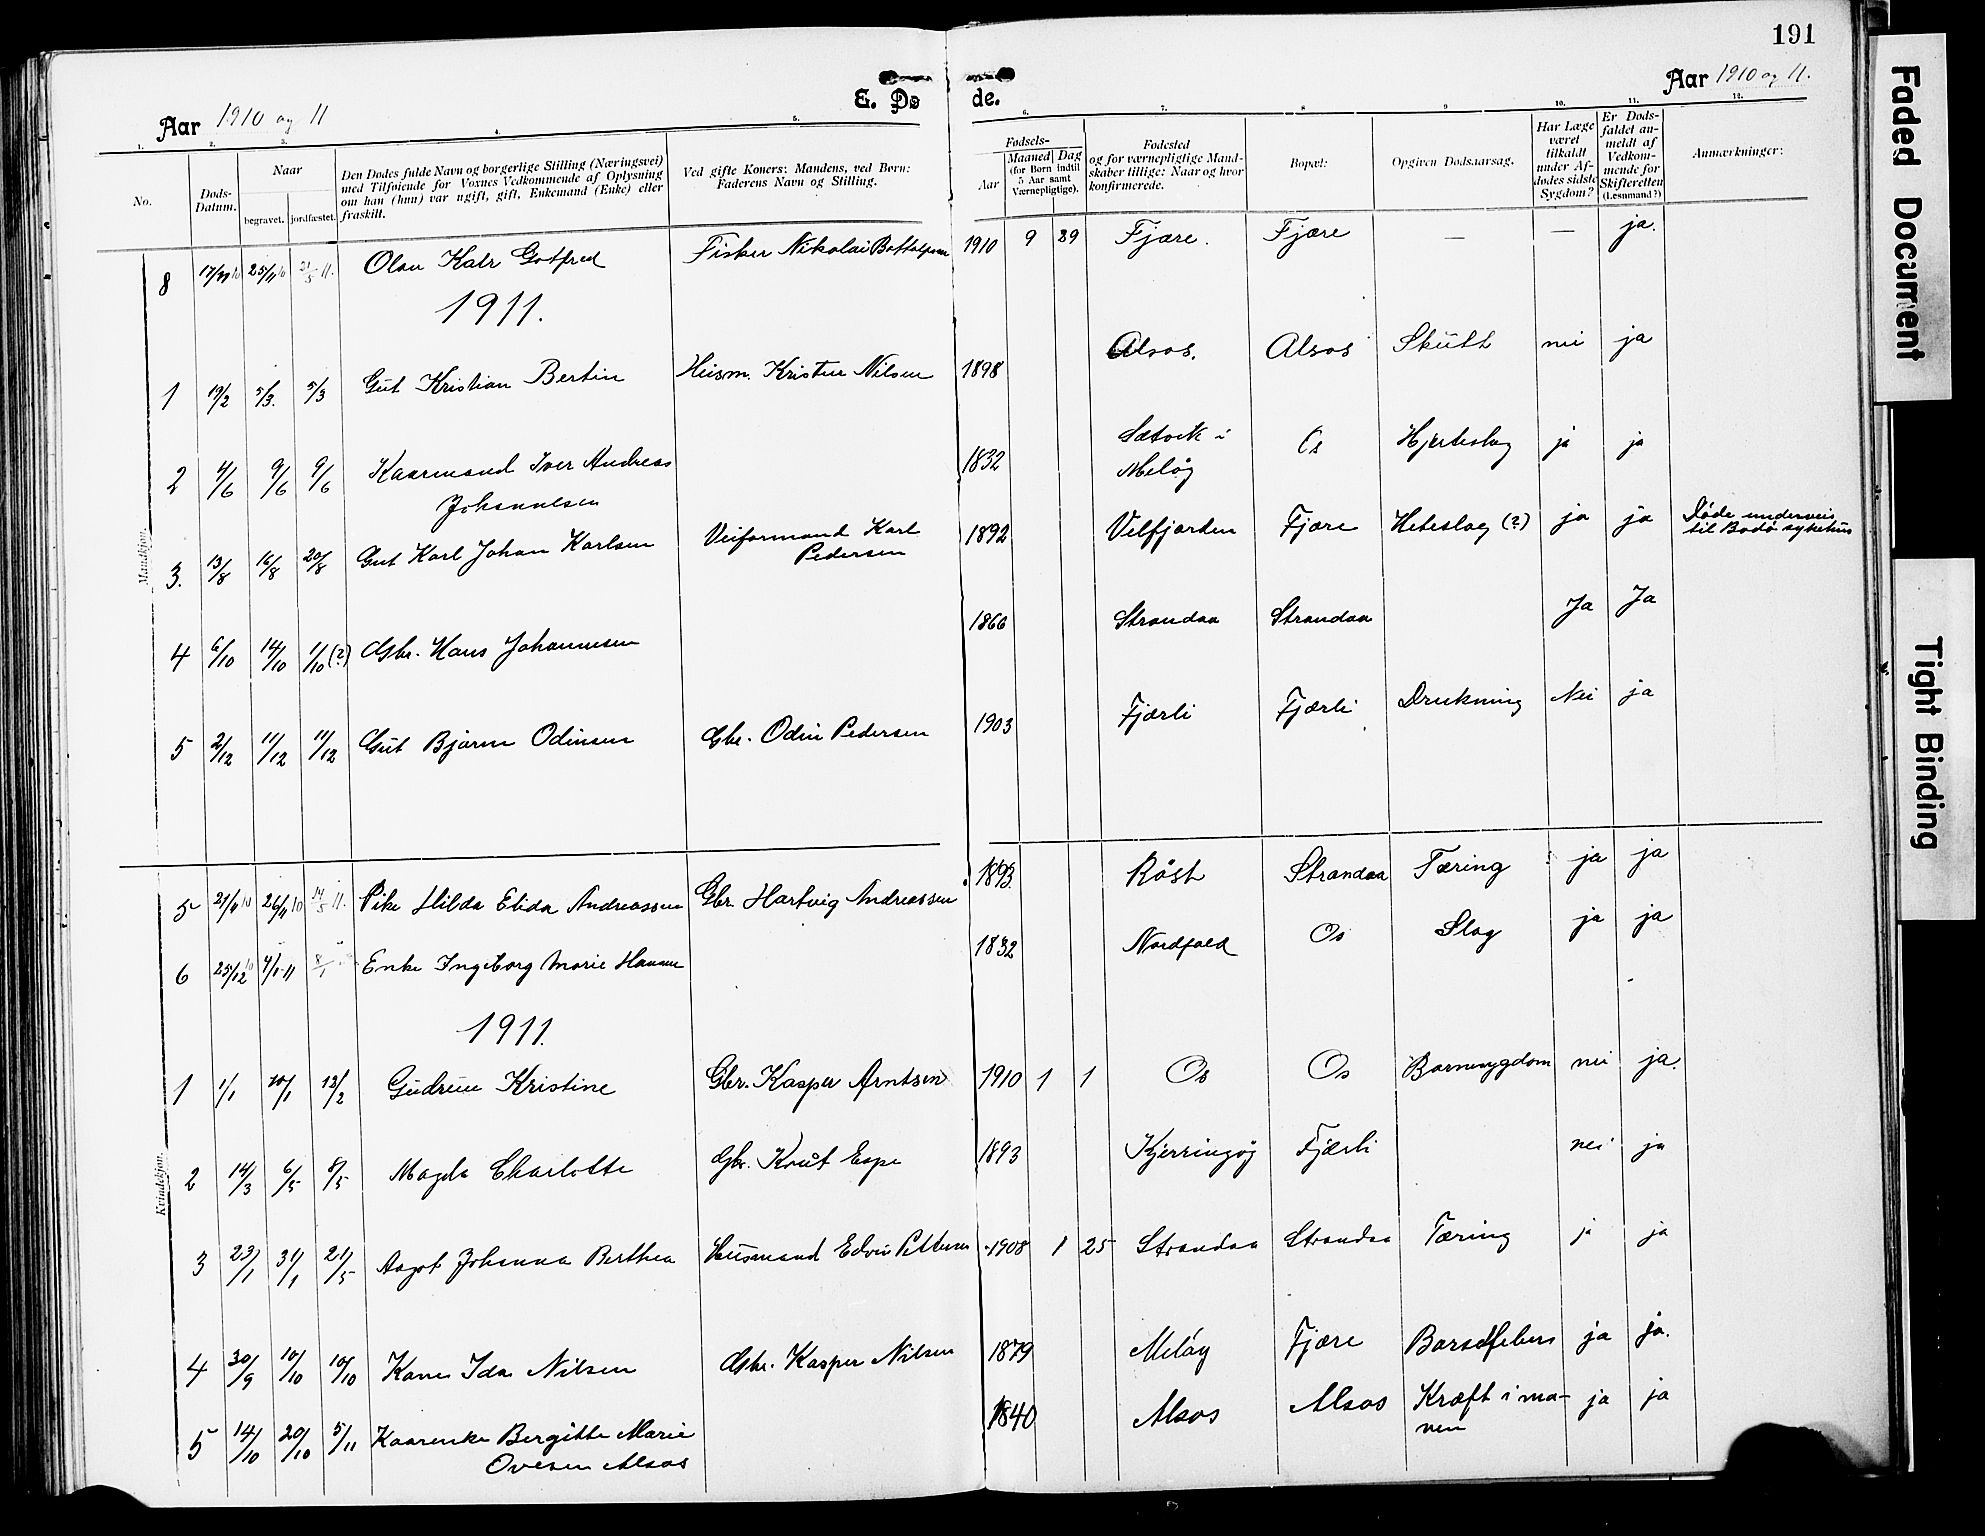 191
Aar 1910 og 11
E. Dø de.
Aar 1910 og 11.
1. 2. 3. 4. 5. 6. 7. 8. 9. 10. 11. 12.
No.
Døds-
Datum.
Naar
begravet. jordfæstet.
Den Dødes fulde Navn og borgerlige Stilling (Næringsvei)
med Tilføiende for Voxnes Vedkommende af Oplysning
om han (hun) var ugift, gift, Enkemand (Enke) eller
fraskilt.
Ved gifte Koner: Mandens, ved Børn:
Faderens Navn og Stilling.
Fødsels-
Aar
Maaned Dag
(for Børn indtil
5 Aar samt
Værnepligtige).
Fødested
og for værnepligtige Mand-
skaber tillige: Naar og hvor
konfirmerede.
Bopæl:
Opgiven Dødsaarsag.
Har Læge
været
tilkaldt
under Af-
dødes sidste
Sygdom?
Er Døds-
faldet an-
meldt af
Vedkom-
mende for
Skifteretten
(Lensmand?)
Anmærkninger:
Mandkjøn.
8 25/11 10 21/5 11. Olav Gotfred Fisker Nikolai 1910 9 29 Fjære. Fjære — — ja.
1911.
1 19/2 5/3. 5/3 Gut Kristian Bertin Husm. Nilsen 1898 Alsos. Alsos Skudt nei ja
2 4/6 9/6 9/6 Kaarmand Iver Andreas
Johannesen 1832 Sætvik i
Meløy Os Hjerteslag ja ja
3. 13/8 16/8 20/8 Gut Karl Johan Karlsen Veiformand Karl
Pedersen 1892 Velfjorden Fjære Heteslag (?) ja ja Døde underveis
til Bodø sykehus
4 6/10 14/10 1/10 (?) Gbr. Hans Johannesen 1866 Strandaa Strandaa Ja Ja
5 2/12 11/12 11/12 Gut Bjarne Odinsen Gbr. Odin Pedersen 1903 Fjærli Fjærli Drukning Nei ja
Kvindekjøn.
5 21/11 10 26/11 10 14/5 11. Pike Hilda Elida Andreassen Gbr. Hartvig Andreassen 1893. Røst Strandaa Tæring ja ja
6 25/12 10 4/1 11 8/1 Enke Ingeborg Marie 1832 Nordfold Os Slag ja ja
1911.
1 1/1 10/1 12/2 Gudrun Kristine Gbr. Kasper Arntsen 1910 1 1 Os Os Barnesygdom nei ja.
2 14/3 6/5 8/5 Magda Charlotte Gbr. Knut Espe 1893 Kjerringøy Fjærli nei ja
3 23/1 31/1 21/5 Aagot Johanna Berthea Husmand Edvin 1908 1 25 Strandaa Strandaa Tæring ja ja
4 30/9 10/10 10/10 Kone Ida Nilsen Gbr. Kasper Nilsen 1879 Meløy Fjære Barselfeber ja ja.
5 14/10 20/10 5/11 Kaarenke Bergitte Marie
Ovesen Alsos 1840 Alsos Alsos Kræft i ma-
ven ja ja
Faded Document
Tight Binding